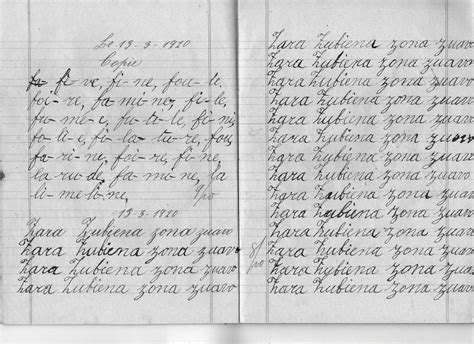 Le 13-3-1920
Copie
fa fè ve, fi-ne, fou-le,
foi-re, fa-mi-ne, fi-le,
fu-mé-e, fu-ti-le, fi-ni,
fo-li-e, fi-la-tu-re, fou,
fa-ri-ne, foi-re, fi-ne,
la ru-de, fa-mi-ne, la
li-me fi-ne,
13-3-1920
Zara Zubiena zona zuavo
Zara Zubiena zona zuavo
Zara Zubiena zona zuavo
Zara Zubiena zona zuavo
Zara Zubiena zona zuavo
Zara Zubiena zona zuavo
Zara Zubiena zona zuavo
Zara Zubiena zona zuavo
Zara Zubiena zona zuavo
Zara Zubiena zona zuavo
Zara Zubiena zona zuavo
Zara Zubiena zona zuavo
Zara Zubiena zona zuavo
Zara Zubiena zona zuavo
Zara Zubiena zona zuavo
Zara Zubiena zona zuavo
Zara Zubiena zona zuavo
Zara Zubiena zona zuavo